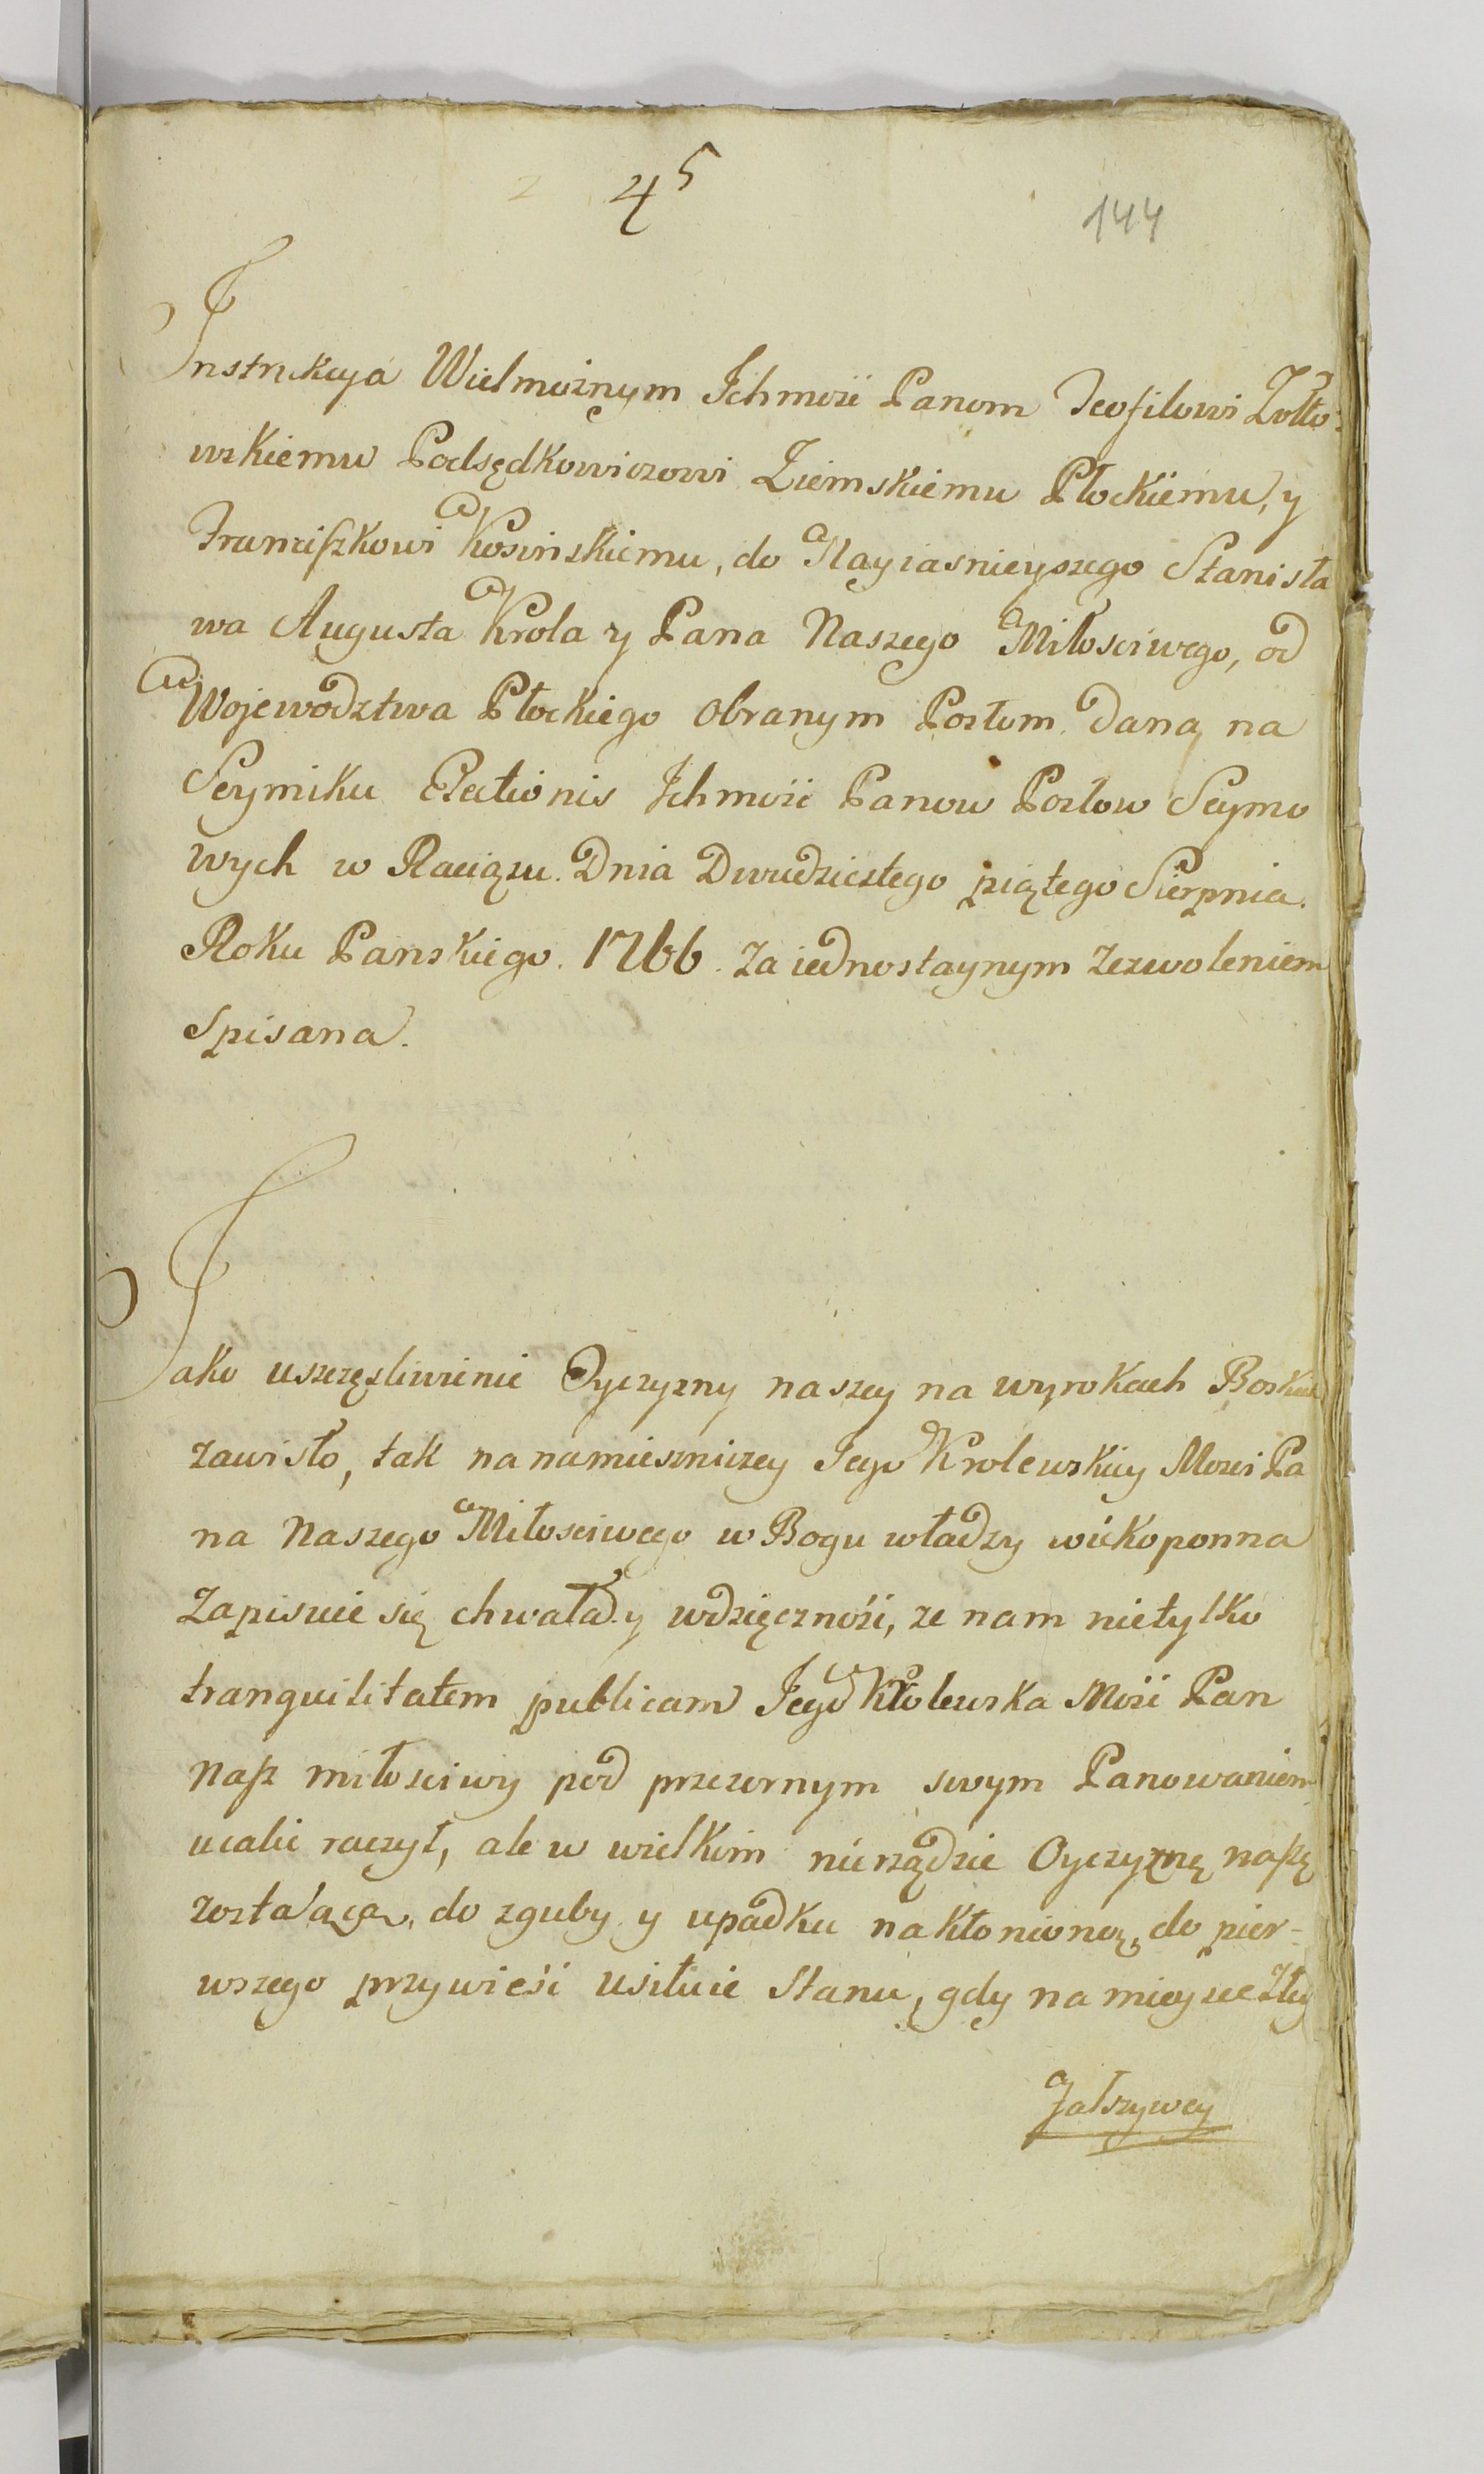 45
144
Instrukcya Wielmożnym Ichmość Panom Teofilowi Zółto:
wskiemu Podsędkowiczowi Ziemskiemu Płockiemu, y
Franciszkowi Kosińskiemu, do Nayiasnieyszego Stanisła
wa Augusta Krola y Pana Naszego Miłosciwego, od
Województwa Płockiego Obranym Posłom Dana, na
Seymiku Electionis Ichmość Panow Posłow Seymo
wych w Raciązu. Dnia Dwudziestego piątego Sierpnia.
Roku Panskiego. 1766. Za iednostaynym Zezwoleniem
Spisana.
Jako uszczęsliwienie Oyczyzny naszey na wyrokach Boskich
zawisło, tak na namieszniczey Jego Krolewskiey Mosci Pa
na Naszego Miłosciwego w Bogu władzy wiekoponna
Zapisuie się chwała y wdzięczność, ze nam nietylko
tranquilitatem publicam Jego Krolewska Mość Pan
nasz miłosciwy pod przezornym swym Panowaniem
ucalic raczył, ale w wielkim nierządzie Oyczyznę naszę
zostaiącą, do zguby y upadku nakłonioną, do pier-
wszego przywieść usiłuie Stanu, gdy na mieysce Złey
Fałszywey